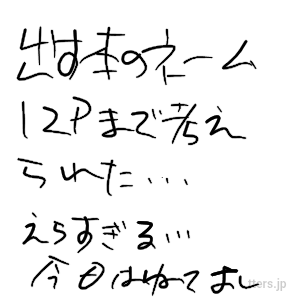 出す本のネーム
12Pまで考え
られた…
えらすぎる…
今日はねてよし
tters.jp